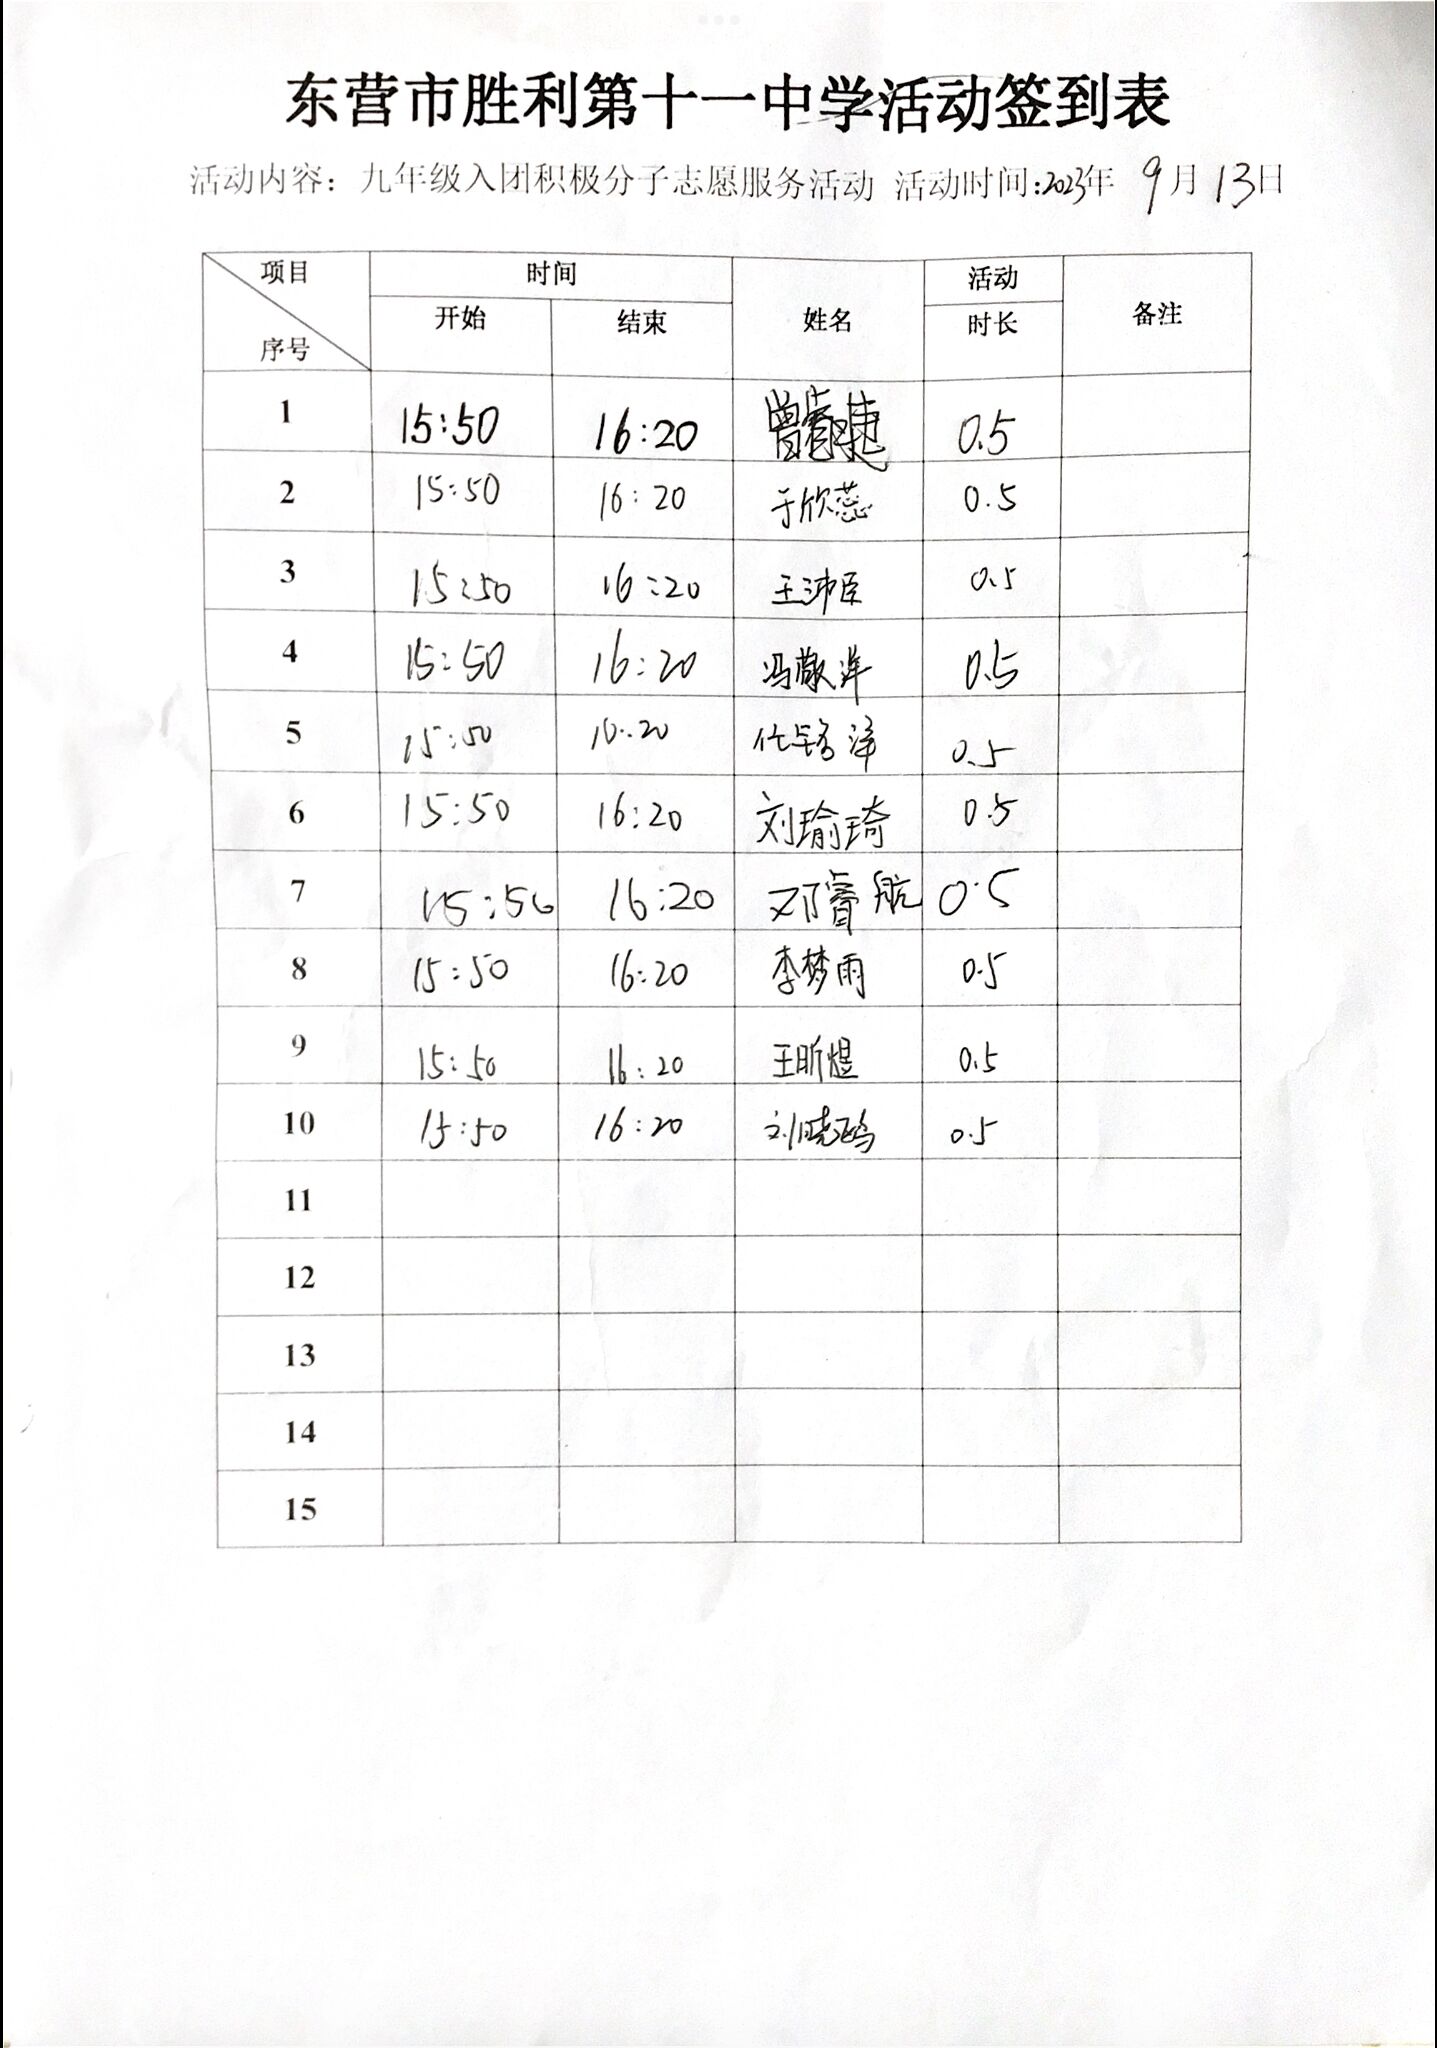 东营市胜利第十一中学活动签到表
活动内容：九年级入团积极分子志愿服务活动 活动时间:2023年 9月 13日
项目 时间 姓名 活动 备注
序号 开始 结束 时长
1 15:50 16:20 0.5
2 15:50 16:20 于欣蕊 0.5
3 15:50 16:20 王沛臣 0.5
4 15:50 16:20 冯敬洋 0.5
5 15:50 16:20 0.5
6 15:50 16:20 刘瑜琦 0.5
7 15:50 16:20 邓睿航 0.5
8 15:50 16:20 李梦雨 0.5
9 15:50 16:20 王昕煜 0.5
10 15:50 16:20 刘晓鸥 0.5
11
12
13
14
15